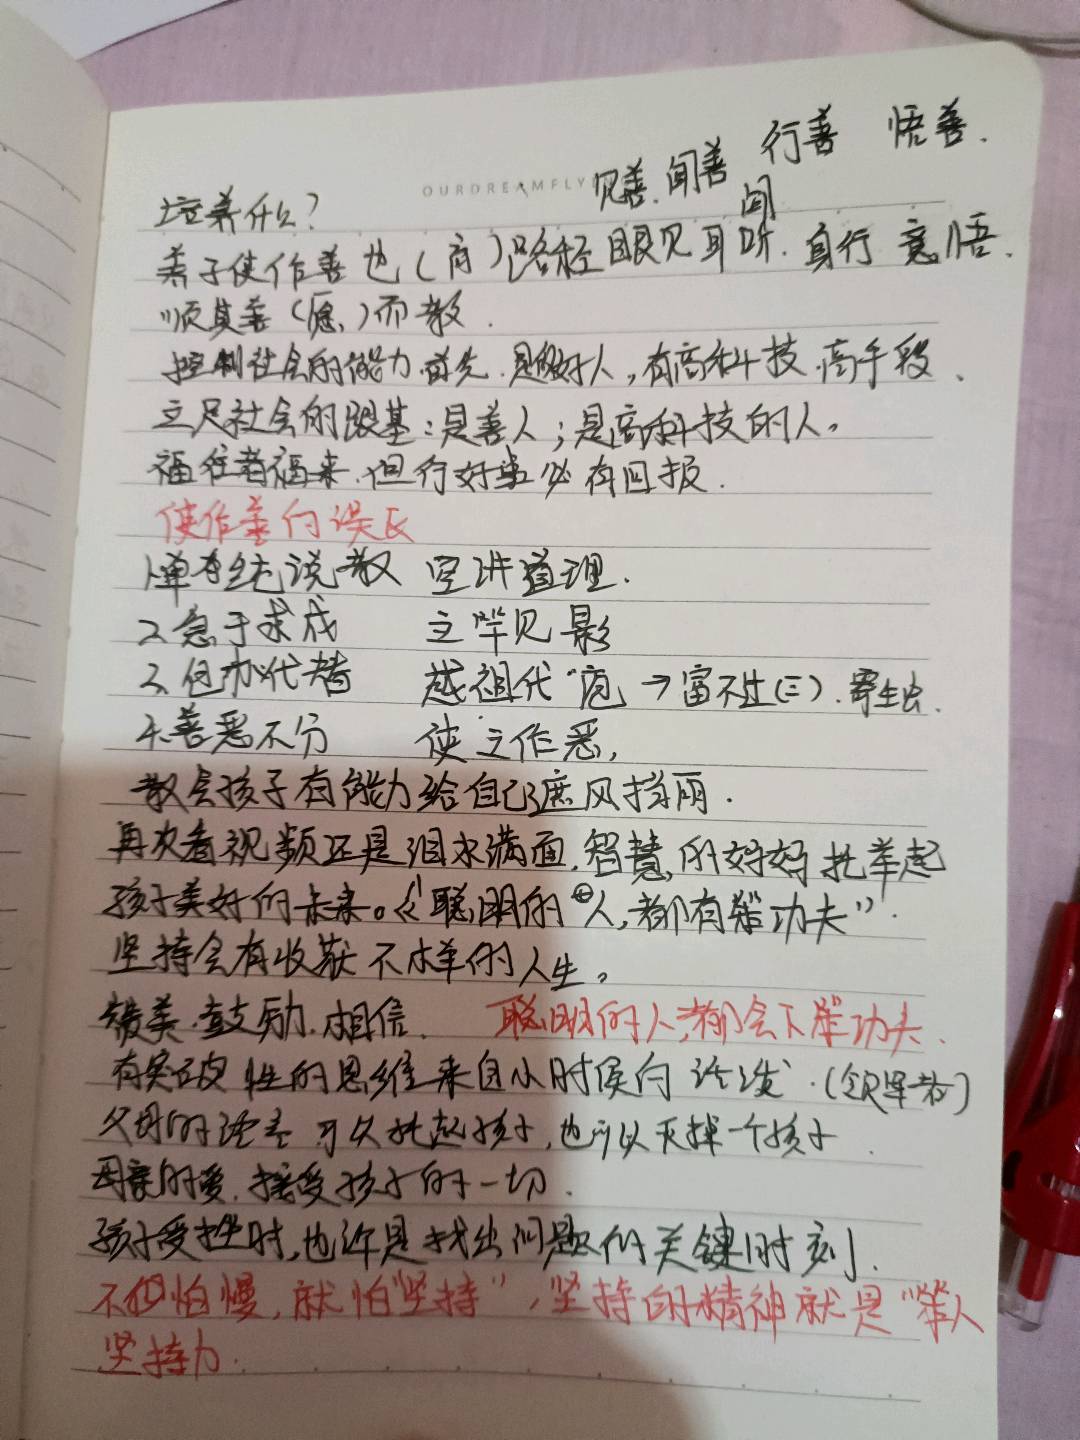 见善.闻善 行善 悟善.
OURDREAMFLY
培养什么?
闻
养子使作善也(商)路经眼见耳听.身行 意悟.
顺其善(愿)而教.
控制社会的能力.首先.是好人,有高科技.高手段.
立足社会的跟基:是善人;是高科技的人。
福往者福来.但行好事必有回报.
使作善的误区
1.单纯说教 空讲道理.
2.急于求成 立竿见影
3.包办代替 越祖代“庖→富不过(三).寄生虫.
4.善恶不分 使之作恶,
教会孩子有能力给自己遮风挡雨.
再次看视频还是泪水满面.智慧的好妈托举起
孩子美好的未来。《“聪明的人,都有笨功夫”.
坚持会有收获不一样的人生。
赞美.鼓励.相信. 聪明的人,都会下笨功夫.
有突破性的思维来自小时候的活泼.
父母的语言可以托起孩子,也可以灭掉一个孩子.
母亲的爱.接受孩子的一切.
孩子受挫时,也许是找出问题的关键时刻.
不怕慢,就怕“坚持”,坚持的精神就是“笨人
坚持力.